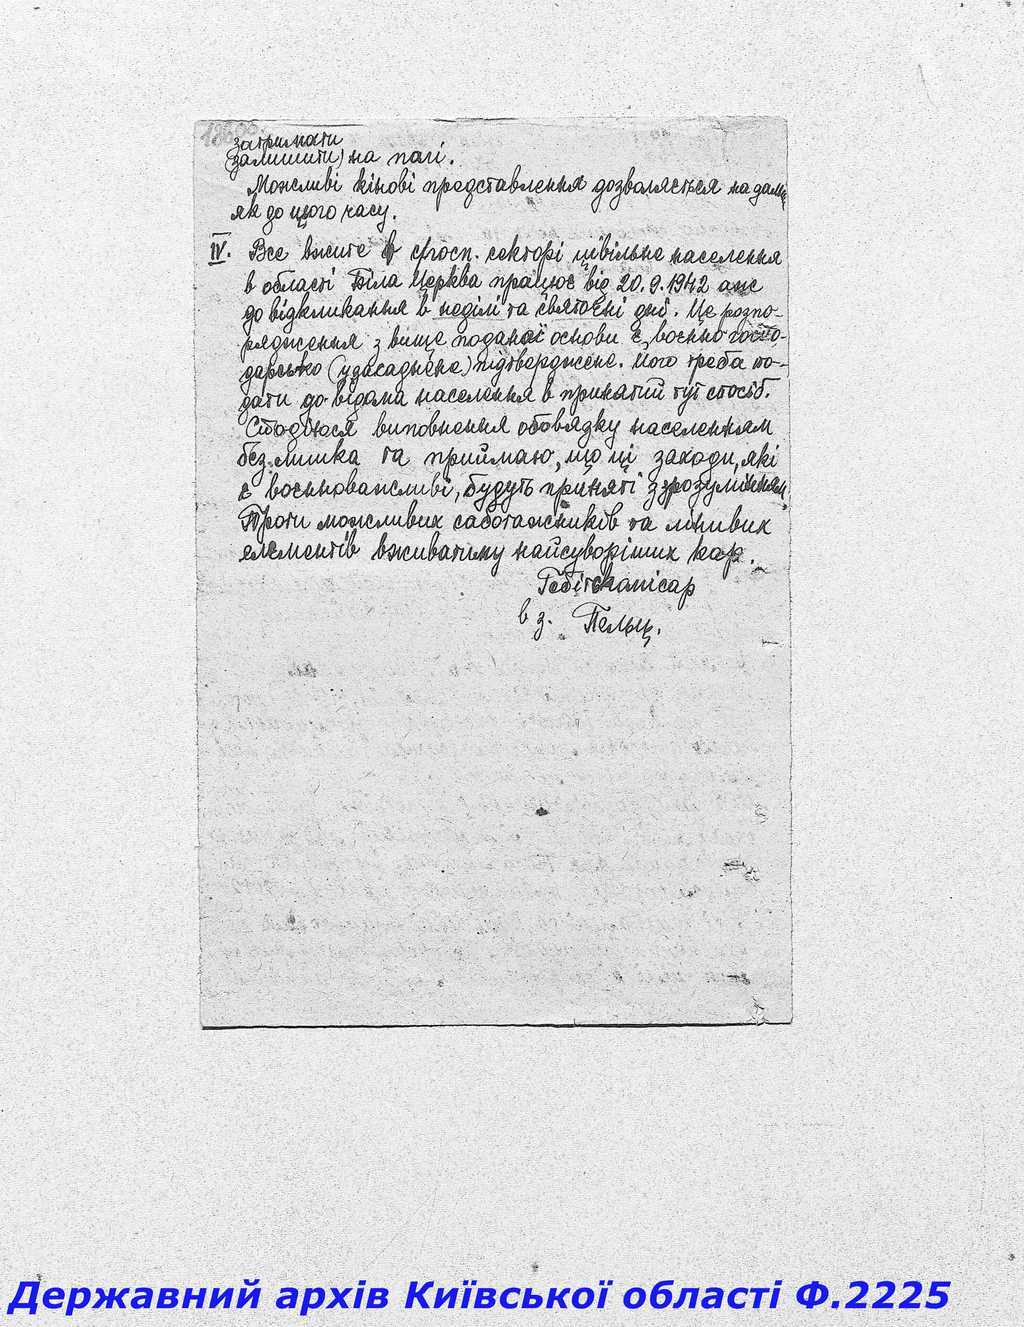 затримати
(залишити) на полі.
Можливі кінові представлення дозволяється надалі,
як до цього часу.
IV. Все вжите в с/госп. секторі цівільне населення
в області Біла Церква працює від 20.9.1942 аж
до відкликання в неділі та святочні дні. Це розпо-
рядження з вище поданої основи є воєнно госпо-
дарсько (узасаднене) підтверджене. Його треба по-
дати до відома населення в принятий тут спосіб.
виповнення обовязку населенням
без лишка та приймаю, що ці заходи, які
є воєнноважливі, будуть приняті з зрозумінням.
Проти можливих саботажників та лінивих
елементів вживатиму найсуворіших кар.
Гебітскомісар
в з. Пельц.
Державний архів Київської області Ф.2225